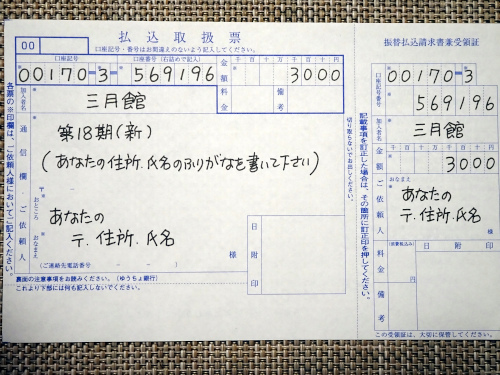 00 払込取扱票
口座記号・番号はお間違えのないよう記入してください。
口座記号 口座番号(右詰めで記入)
00170-3-569196
金額 千 百 十 万 千 百 十 円
3000
加入者名 三月館
料金 備考
通信欄・ご依頼人
第18期(新)
(あなたの住所.氏名のふりがなを書いて下さい)
〒
おところ
おなまえ
あなたの
〒.住所.氏名
様
(ご連絡先電話番号 - - )
日附印
裏面の注意事項をお読みください。(ゆうちょ銀行)
これより下部には何も記入しないでください。
各票の※印欄は、ご依頼人様においてご記入ください。
切り取らないでお出しください。
記載事項を訂正した場合は、その箇所に訂正印を押してください。
振替払込請求書兼受領証
口座記号
00170-3
569196
加入者名 三月館
金額 千 百 十 万 千 百 十 円
3000
ご依頼人 おなまえ
あなたの
〒.住所.氏名
様
料金 (消費税込み)
円
日附印
備考
この受領証は、大切に保管してください。